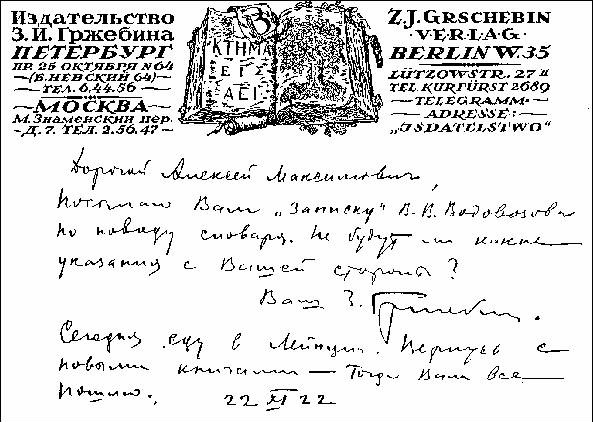 Издательство
З.И. Гржебина
ПЕТЕРБУРГ
ПР 25 ОКТЯБРЯ N 64
—(Б. НЕВСКИЙ 64)—
— ТЕЛ. 6.44.56 —
— МОСКВА —
М. Знаменский пер.
– Д. 7. ТЕЛ. 2.56.47 –
ΚΤΗΜΑ
ΕΙΣ
ΑΕΙ
Z.J. GRSCHEBIN
· VERLAG ·
BERLIN W. 35
LÜTZOWSTR. 27 II
TEL KURFÜRST 2689
— TELEGRAMM-
— ADRESSE: —
„ISDATELSTWO"
Дорогой Алексей Максимович,
Посылаю Вам „Записку" В. В. Водовозова
по поводу словаря. Не будут ли какие
указания с Вашей стороны?
Ваш З. Гржебин.
Сегодня еду в Лейпциг. Вернусь с
новыми книгами — тогда Вам все
пошлю.
22 XI 22